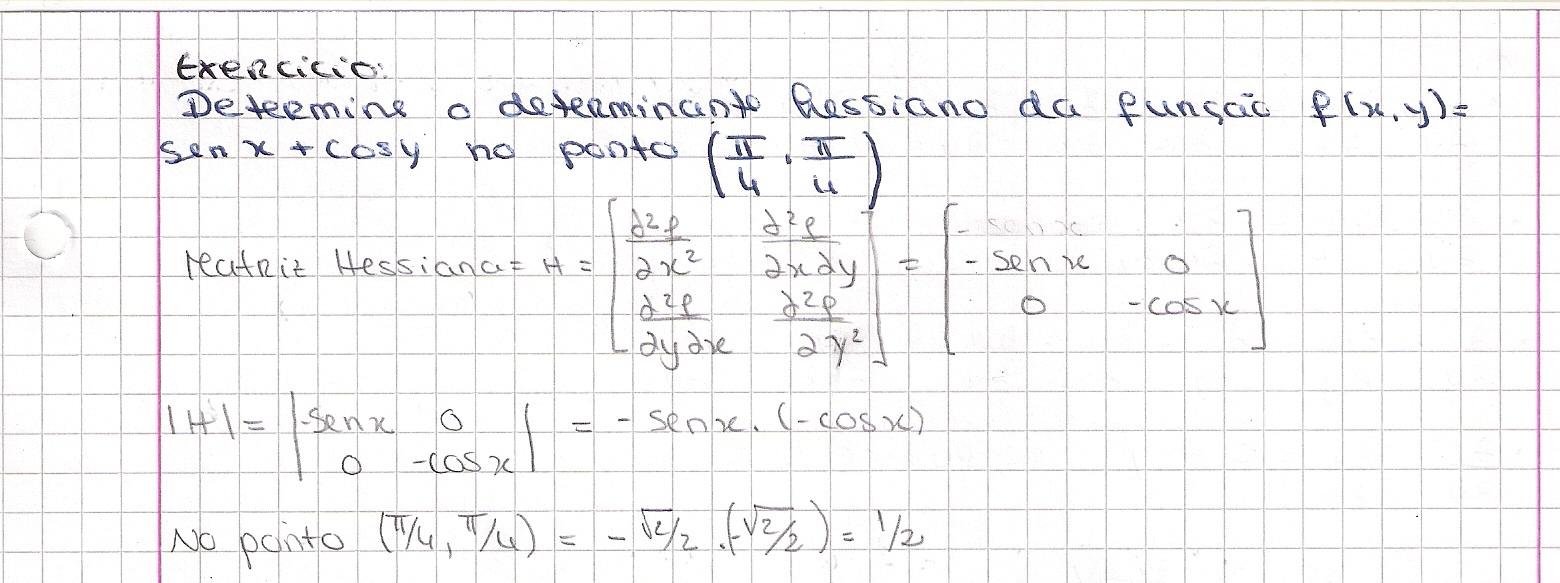 Exercício:
Determine o determinante hessiano da função f(x,y)=
sen x + cos y no ponto (π/4, π/4)
Matriz Hessiana = H = [∂²f/∂x² ∂²f/∂x∂y; ∂²f/∂y∂x ∂²f/∂y²] = [-sen x 0; 0 -cos x]
|H| = |-sen x 0; 0 -cos x| = - sen x . (-cos x)
No ponto (π/4, π/4) = - √2/2 . (-√2/2) = 1/2